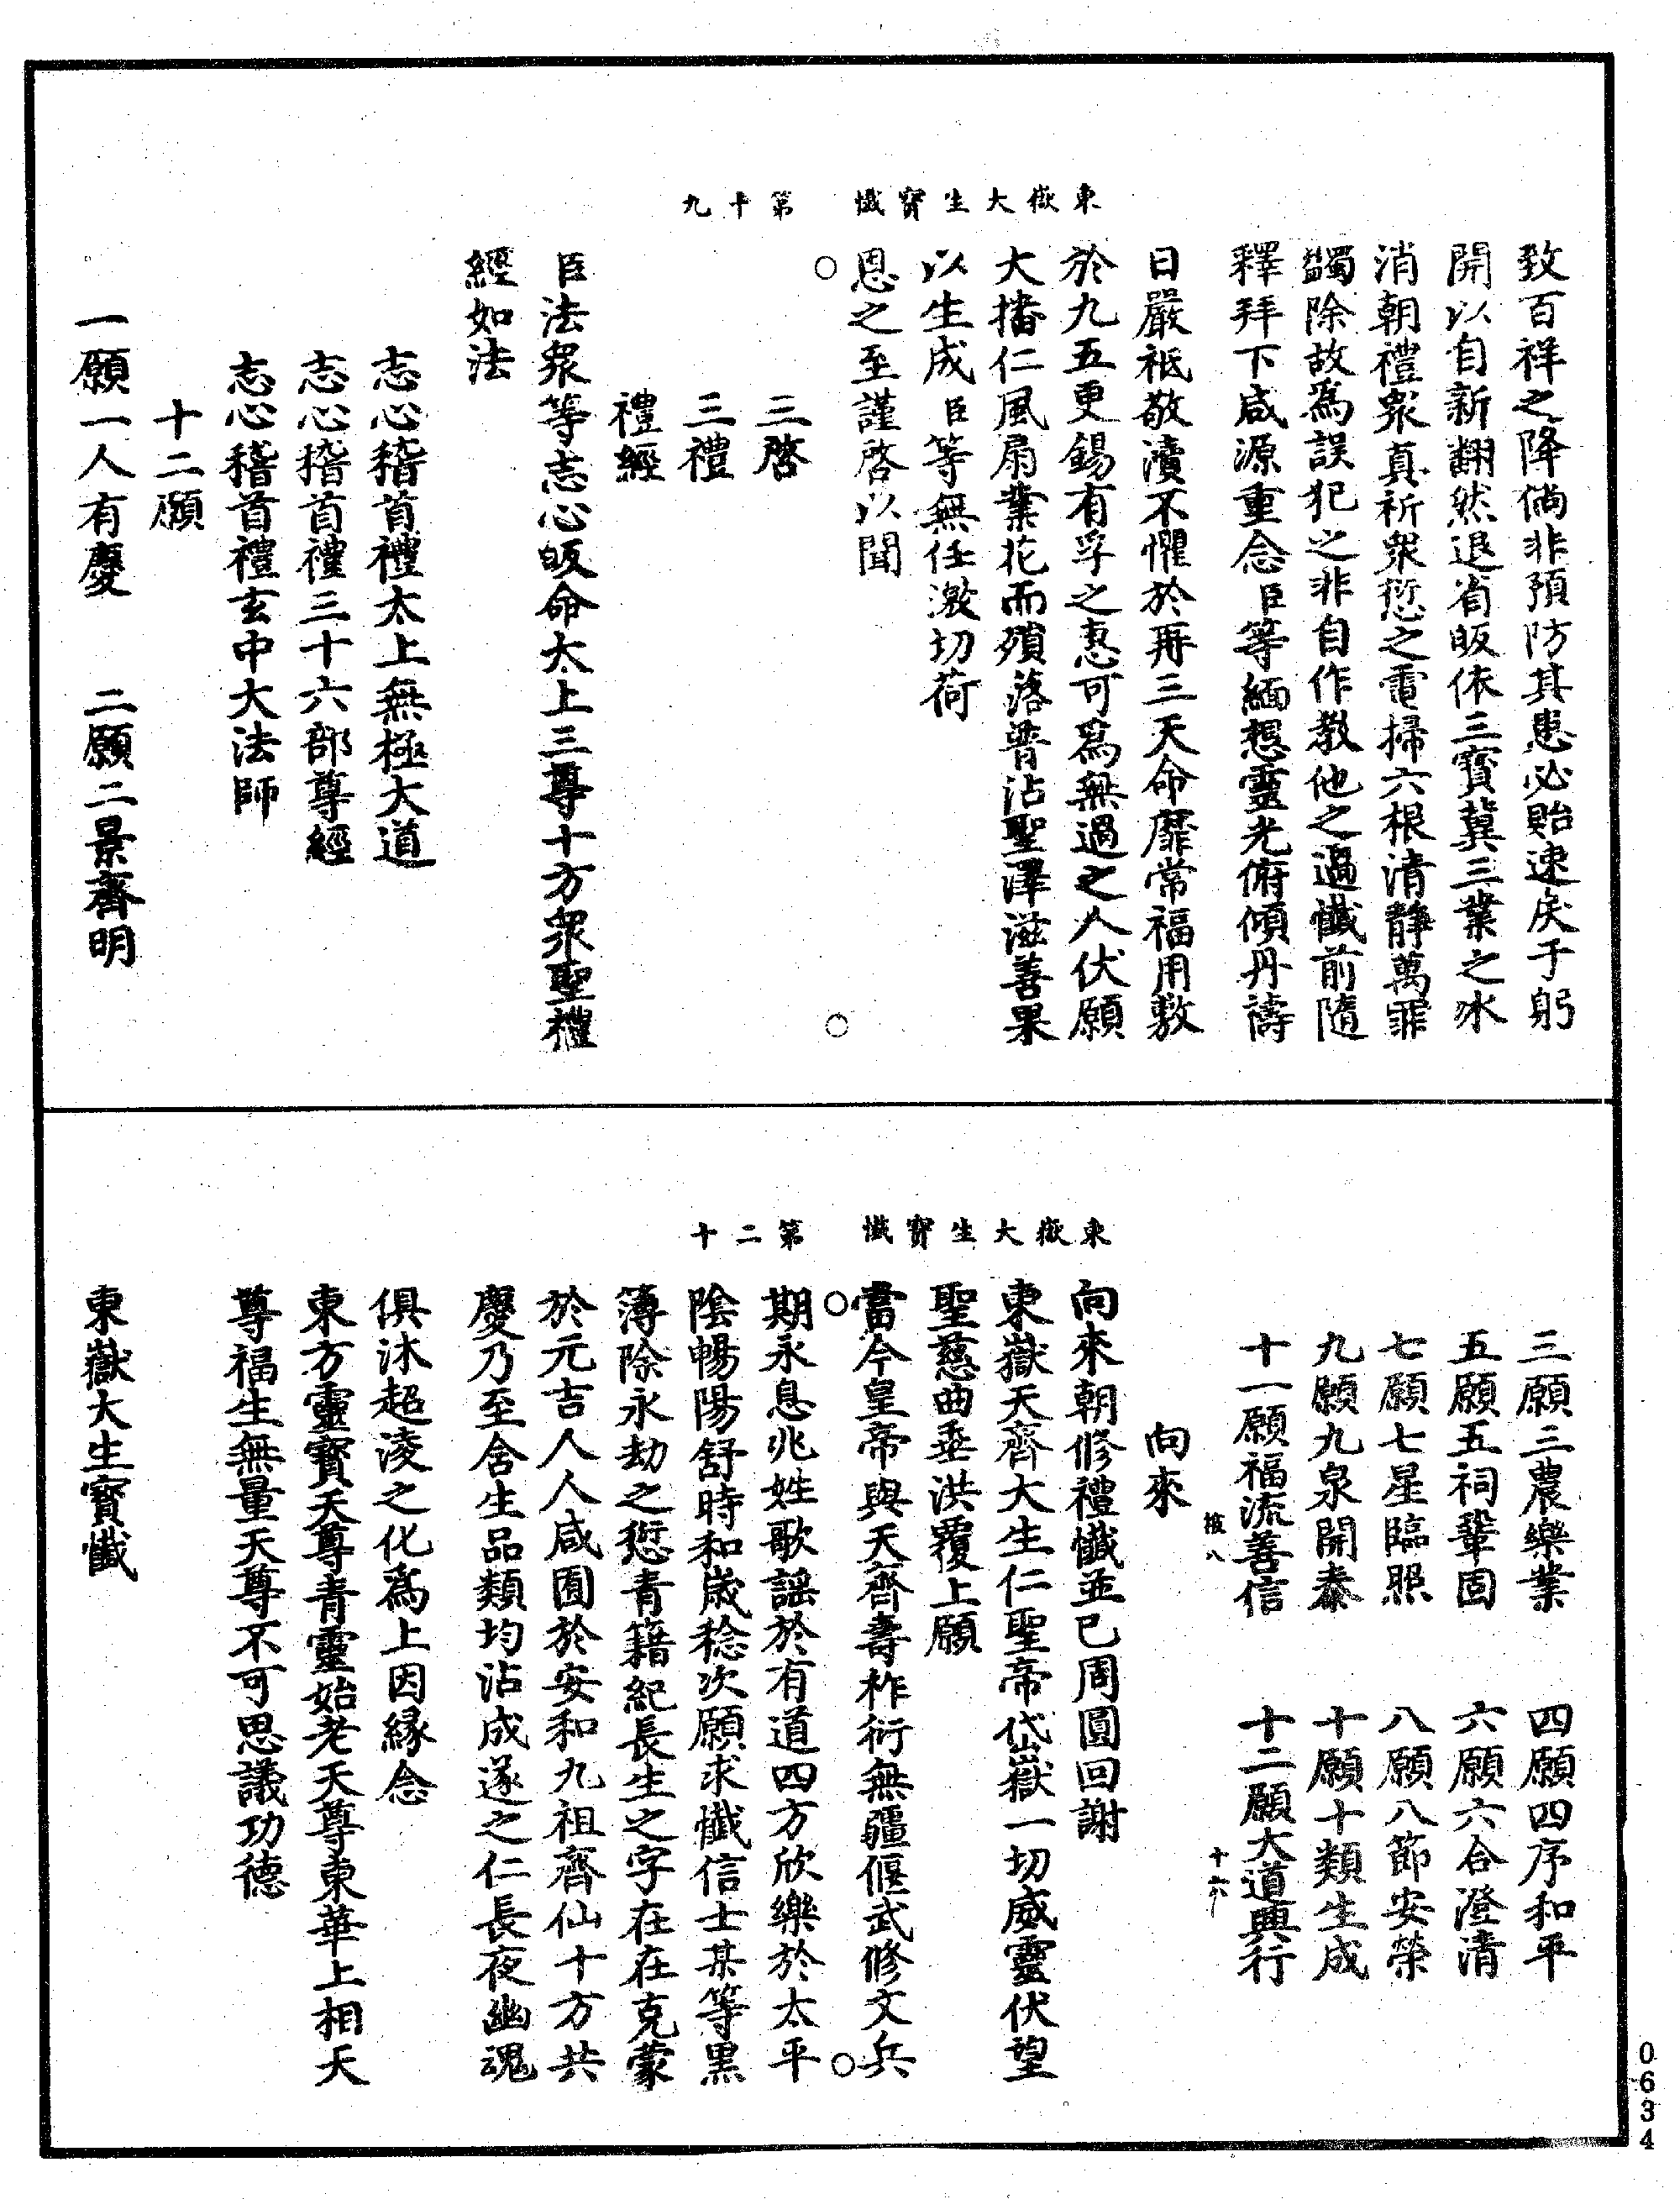 致百祥之降倘非預防其患必貽速戾于躬
開以自新翻然退省皈依三寳冀三業之冰
消朝禮衆真祈衆愆之電掃六根清静萬罪
蠲除故為誤犯之非自作教他之過懺前隨
釋拜下咸源重念臣等緬想靈光俯傾丹禱
日嚴祗敬瀆不懼於再三天命靡常福用敷
於九五更錫有孚之惠可為無過之人伏願
大播仁風扇業花而殞落普沾聖澤滋善果
以生成臣等無任激切荷
恩之至謹啓以聞
東嶽大生寳懺　第十九
○　○
三啓
三禮
禮經
臣法衆等志心皈命太上三尊十方衆聖禮
經如法
志心稽首禮太上無極大道
志心稽首禮三十六部尊經
志心稽首禮玄中大法師
十二願
一願一人有慶　二願二景齊明
三願三農樂業　四願四序和平
五願五祠鞏固　六願六合澄清
七願七星臨照　八願八節安榮
九願九泉開泰　十願十類生成
十一願福流善信　十二願大道興行
推八　十六
向來
向來朝修禮懺並已周圓回謝
東嶽天齊大生仁聖帝岱嶽一切威靈伏望
聖慈曲垂洪覆上願
當今皇帝與天齊壽祚衍無疆偃武修文兵
東嶽大生寳懺　第二十
○　○
期永息兆姓歌謡於有道四方欣樂於太平
陰暢陽舒時和歲稔次願求懺信士某等黑
簿除永劫之愆青籍紀長生之字在在克蒙
於元吉人人咸囿於安和九祖齊仙十方共
慶乃至含生品類均沾成遂之仁長夜幽魂
俱沐超淩之化為上因緣念
東方靈寳天尊青靈始老天尊東華上相天
尊福生無量天尊不可思議功德
東嶽大生寳懺
0634